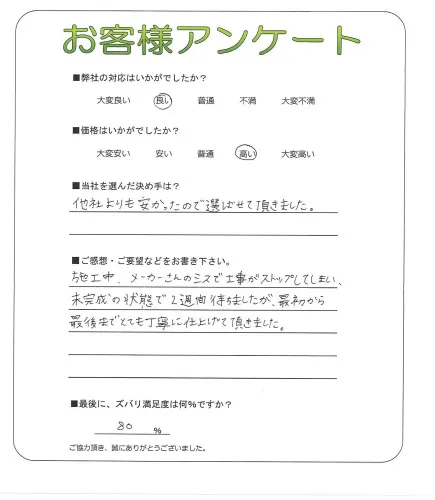 お客様アンケート
■弊社の対応はいかがでしたか？
大変良い 良い 普通 不満 大変不満
■価格はいかがでしたか？
大変安い 安い 普通 高い 大変高い
■当社を選んだ決め手は？
他社よりも安かったので選ばせて頂きました。
■ご感想・ご要望などをお書き下さい。
施工中、メーカーさんのミスで工事がストップしてしまい、
未完成の状態で2週間待ちましたが、最初から
最後までとても丁寧に仕上げて頂きました。
■最後に、ズバリ満足度は何％ですか？
80 %
ご協力頂き、誠にありがとうございました。